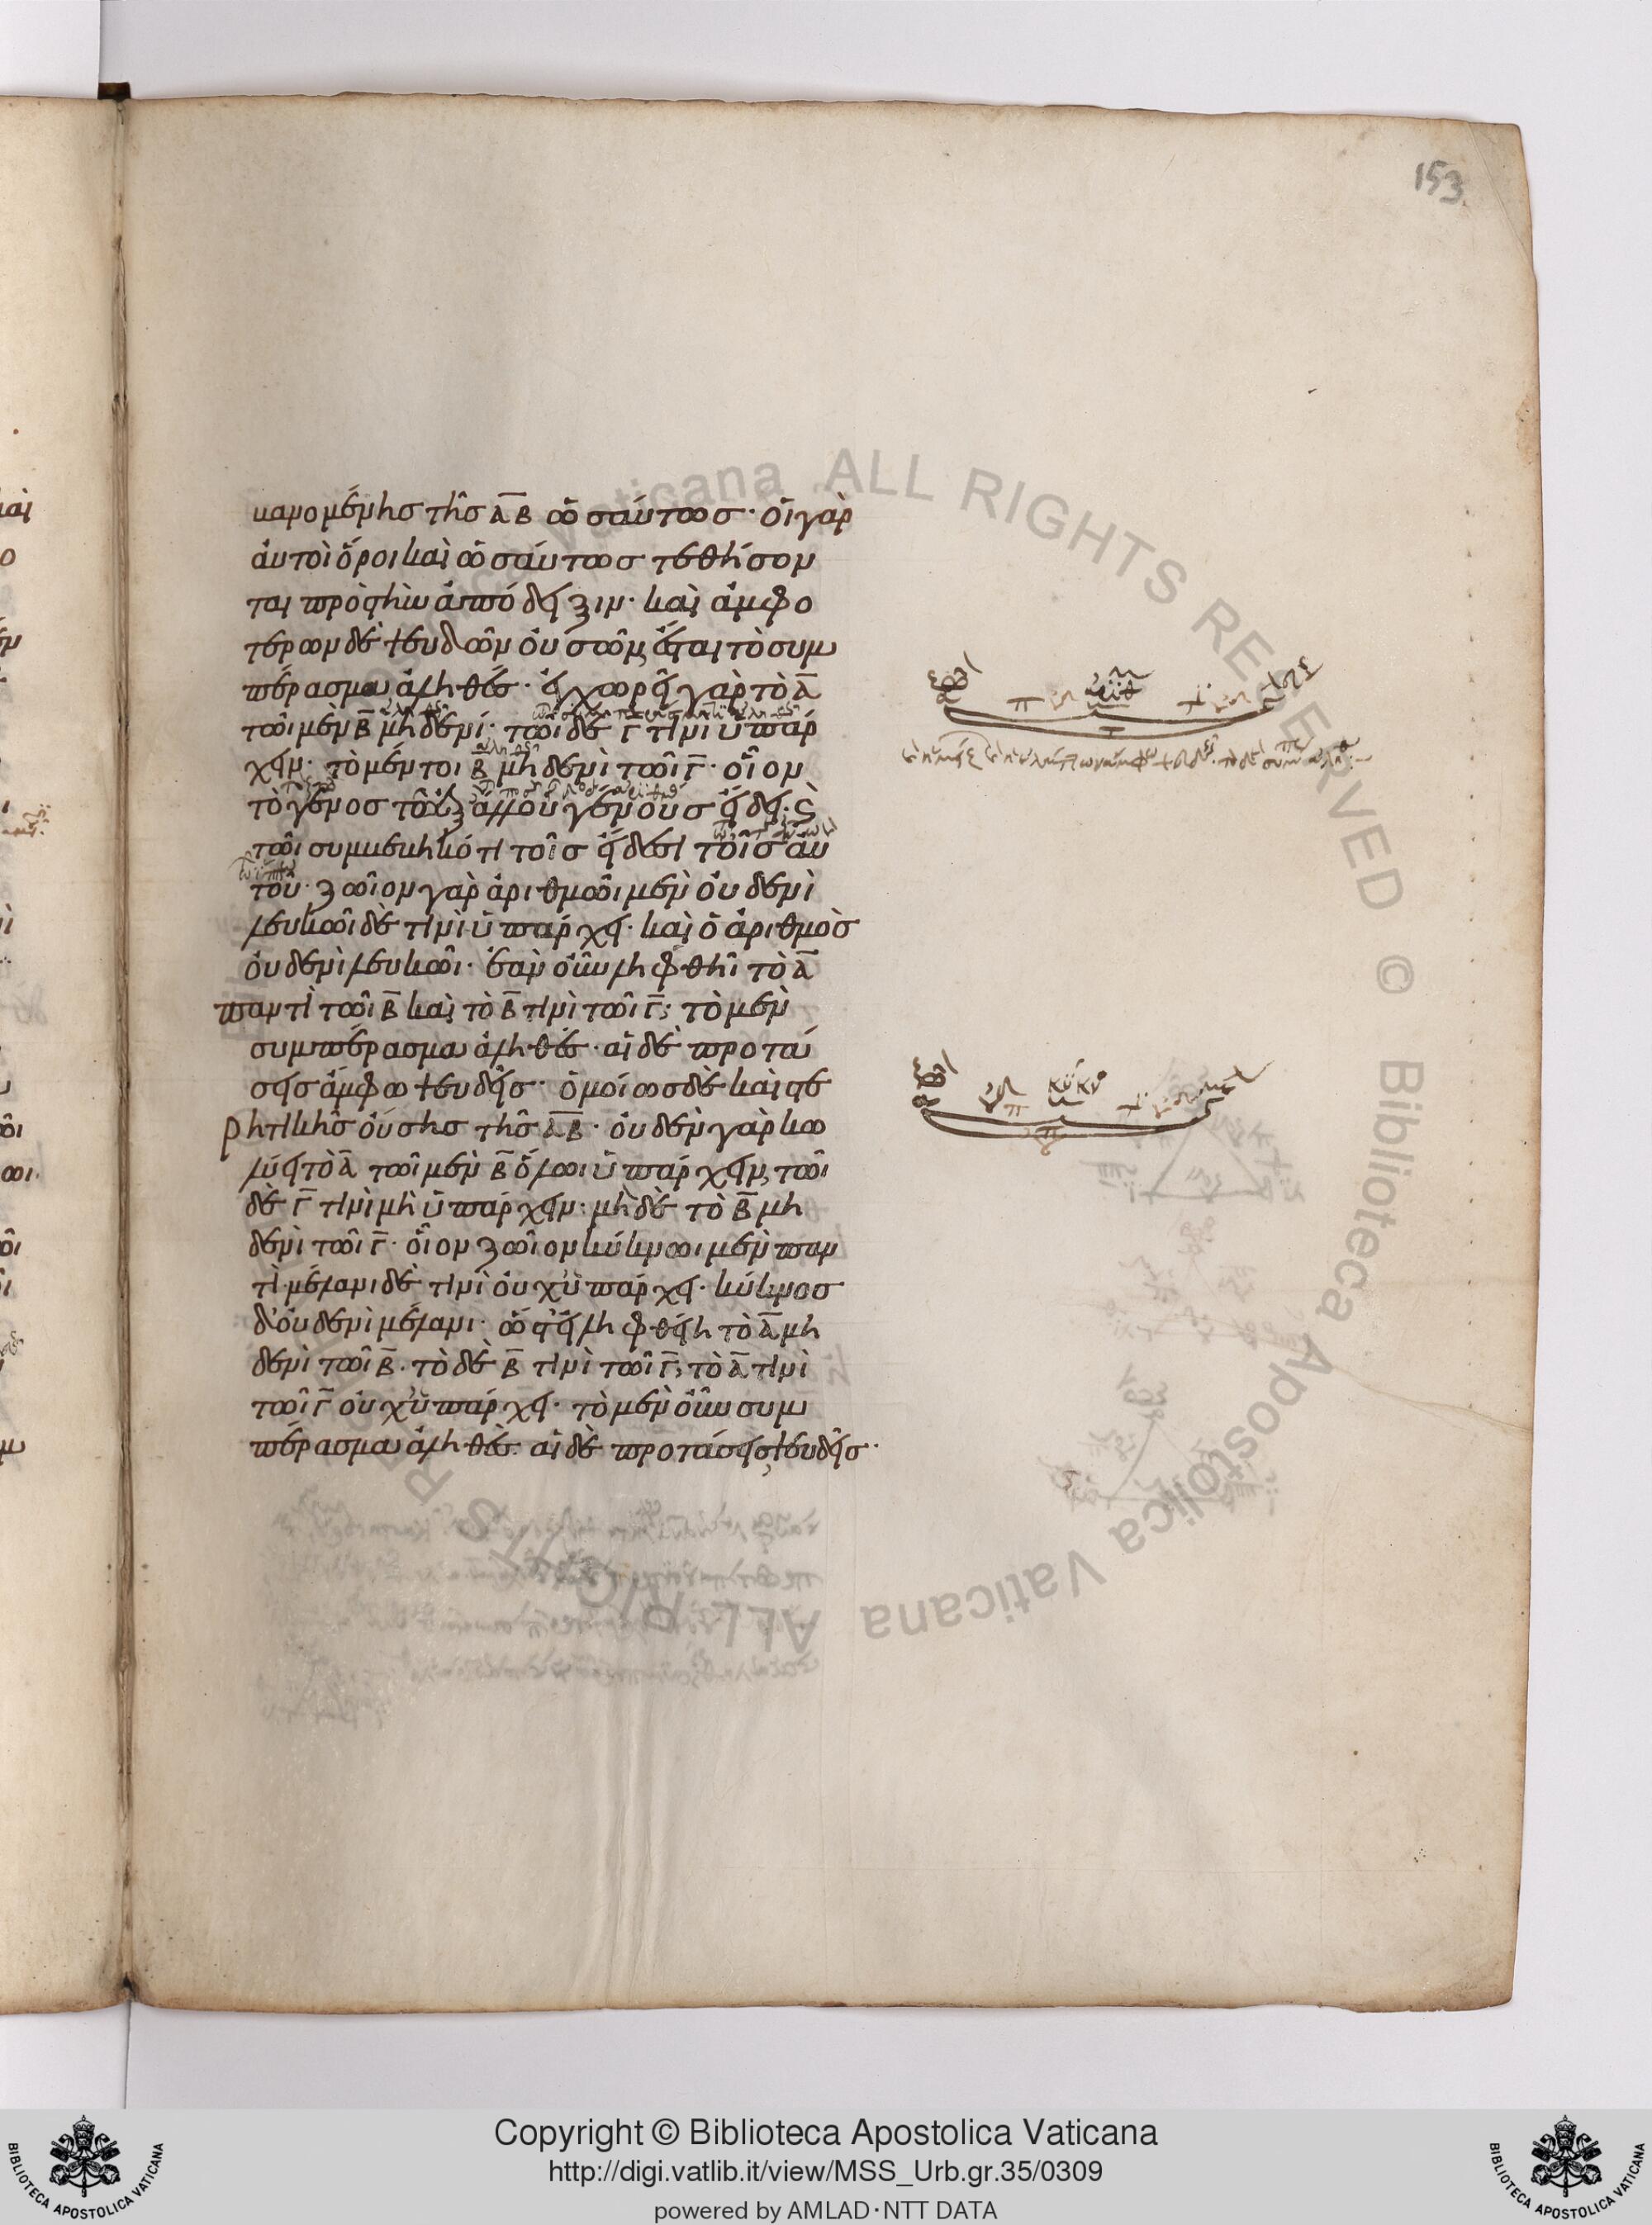 153
μανομένης τῆς Α Β ὡσαύτως· οἱ γὰρ
αὐτοὶ ὅροι καὶ ὡσαύτως τεθήσον
ται πρὸς τὴν ἀπόδειξιν· καὶ ἀμφο
τέρων δὲ ψευδῶν οὐσῶν ἔσται τὸ συμ
πέρασμα ἀληθές· ἐγχωρεῖ γὰρ τὸ Α
τῶι μὲν Β μηδενί· τῶι δὲ Γ τινὶ ὑπάρ
χειν· τὸ μέντοι Β μηδενὶ τῶι Γ· οἷον
τὸ γένος τοῖς ἐξ ἄλλου γένους εἴδεσι
τῶι συμβεβηκότι τοῖς εἴδεσι τοῖς αὐ
τοῦ· ζῶιον γὰρ ἀριθμῶι μὲν οὐδενὶ
λευκῶι δὲ τινὶ ὑπάρχει· καὶ ὁ ἀριθμὸς
οὐδενὶ λευκῶι· ἐὰν οὖν ληφθῆι τὸ Α
παντὶ τῶι Β καὶ τὸ Β τινὶ τῶι Γ, τὸ μὲν
συμπέρασμα ἀληθές· αἱ δὲ προτά
σεις ἄμφω ψευδεῖς· ὁμοίως δὲ καὶ στε
ρητικῆς οὔσης τῆς Α Β· οὐδὲν γὰρ κω
λύει τὸ Α τῶι μὲν Β ὅλωι ὑπάρχειν, τῶι
δὲ Γ τινὶ μὴ ὑπάρχειν· μὴδὲ τὸ Β μη
δενὶ τῶι Γ· οἷον ζῶιον κύκνωι μὲν παν
τὶ· μέλανι δὲ τινὶ οὐχ ὑπάρχει· κύκνος
δ' οὐδενὶ μέλανι· ὥστ' εἰ ληφθείη τὸ Α μη
δενὶ τῶι Β· τὸ δὲ Β τινὶ τῶι Γ, τὸ Α τινὶ
τῶι Γ οὐχ ὑπάρχει· τὸ μὲν οὖν συμ
πέρασμα ἀληθές· αἱ δὲ προτάσεις ψευδεῖς·
Biblioteca Apostolica Vaticana ALL RIGHTS RESERVED ©
Copyright © Biblioteca Apostolica Vaticana
http://digi.vatlib.it/view/MSS_Urb.gr.35/0309
powered by AMLAD·NTT DATA
BIBLIOTECA APOSTOLICA VATICANA
BIBLIOTECA APOSTOLICA VATICANA